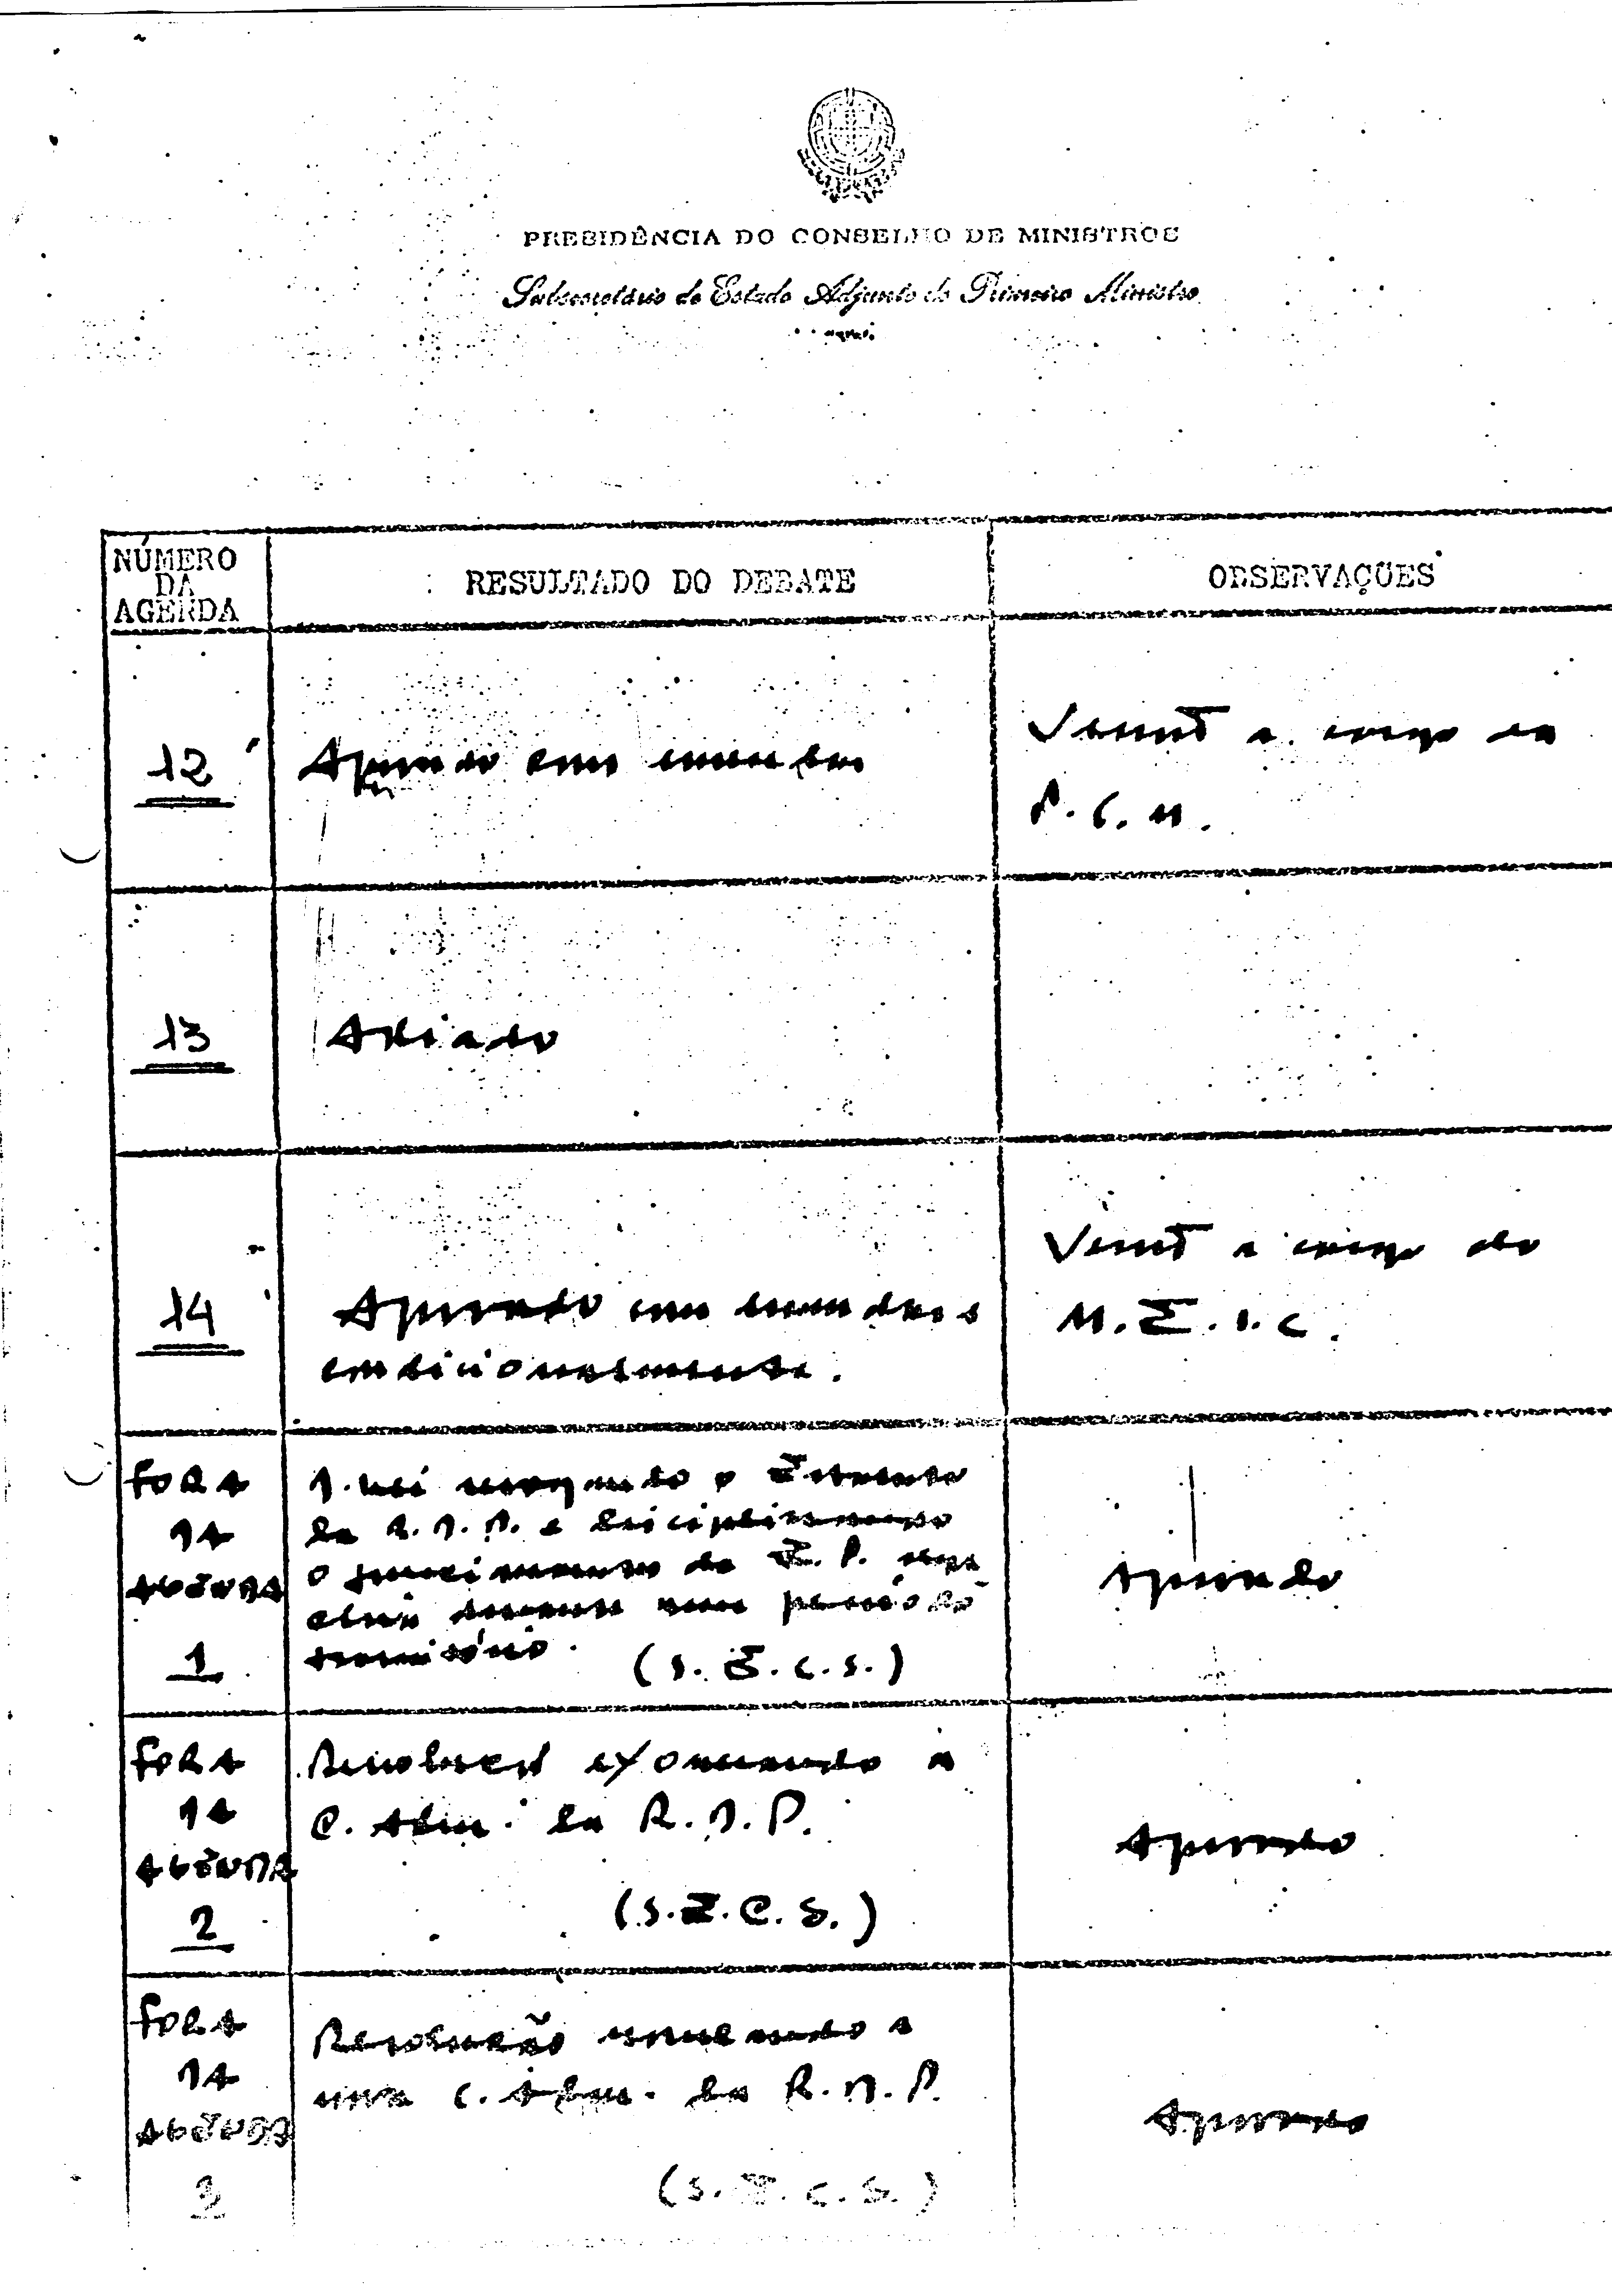 PRESIDÊNCIA DO CONSELHO DE MINISTROS
Subsecretário de Estado Adjunto do Primeiro Ministro
NÚMERO
DA
AGENDA
RESULTADO DO DEBATE
OBSERVAÇÕES
12
Aprovado com emendas
a cargo da
P. C. M.
13
Adiado
14
Aprovado com emendas
condicionalmente.
a cargo do
M. E. I. C.
FORA
DA
AGENDA
1
D. Lei revogando o Estatuto
da R. D. P. e disciplinando
o funcionamento da E. P. 
durante um período
transitório. (S. E. C. S.)
Aprovado
FORA
DA
AGENDA
2
Resolução exonerando a
C. Adm. da R. D. P.
(S. E. C. S.)
Aprovado
FORA
DA
AGENDA
3
Resolução nomeando a
nova C. Adm. da R. D. P.
(S. E. C. S.)
Aprovado